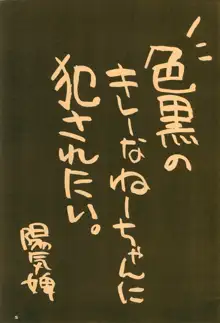 色黒の
キレーなねーちゃんに
犯されたい。
陽気婢